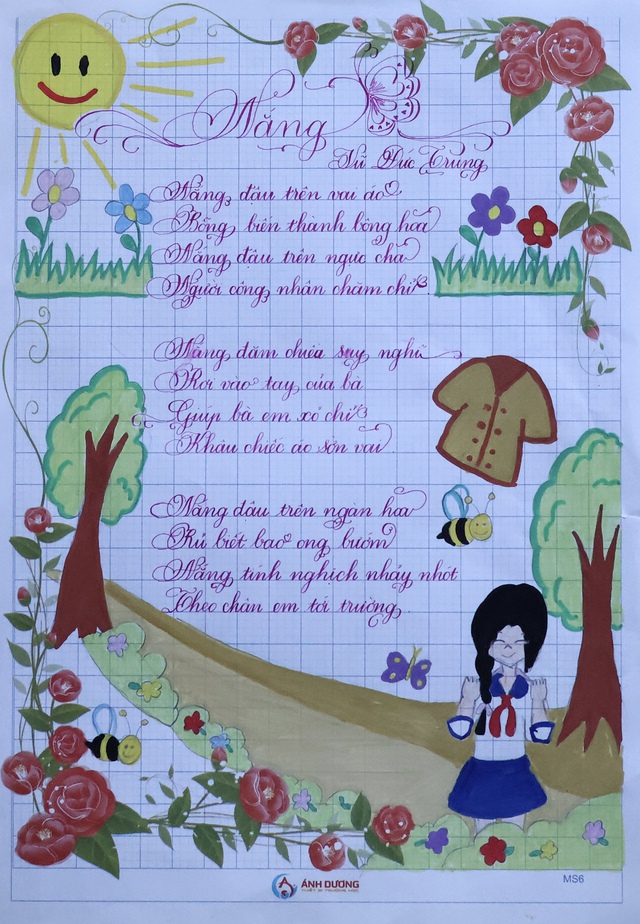 Nắng
Vũ Đức Trung
Nắng đậu trên vai áo
Bỗng biến thành bông hoa
Nắng đậu trên ngực cha
Người công nhân chăm chỉ.
Nắng đăm chiêu suy nghĩ
Rơi vào tay của bà
Giúp bà em xỏ chỉ
Khâu chiếc áo sờn vai.
Nắng đậu trên ngàn hoa
Rủ biết bao ong bướm
Nắng tinh nghịch nhảy nhót
Theo chân em tới trường.
ÁNH DƯƠNG
MS6